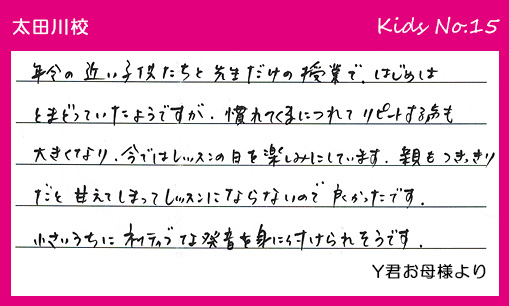 太田川校
Kids No.15
年令の近い子供たちと先生だけの授業で、はじめは
とまどっていたようですが、慣れてくるにつれてリピートする声も
大きくなり、今ではレッスンの日を楽しみにしています。親もつきっきり
だと甘えてしまってレッスンにならないので良かったです。
小さいうちにネイティブな発音を身に付けられそうです。
Y君お母様より